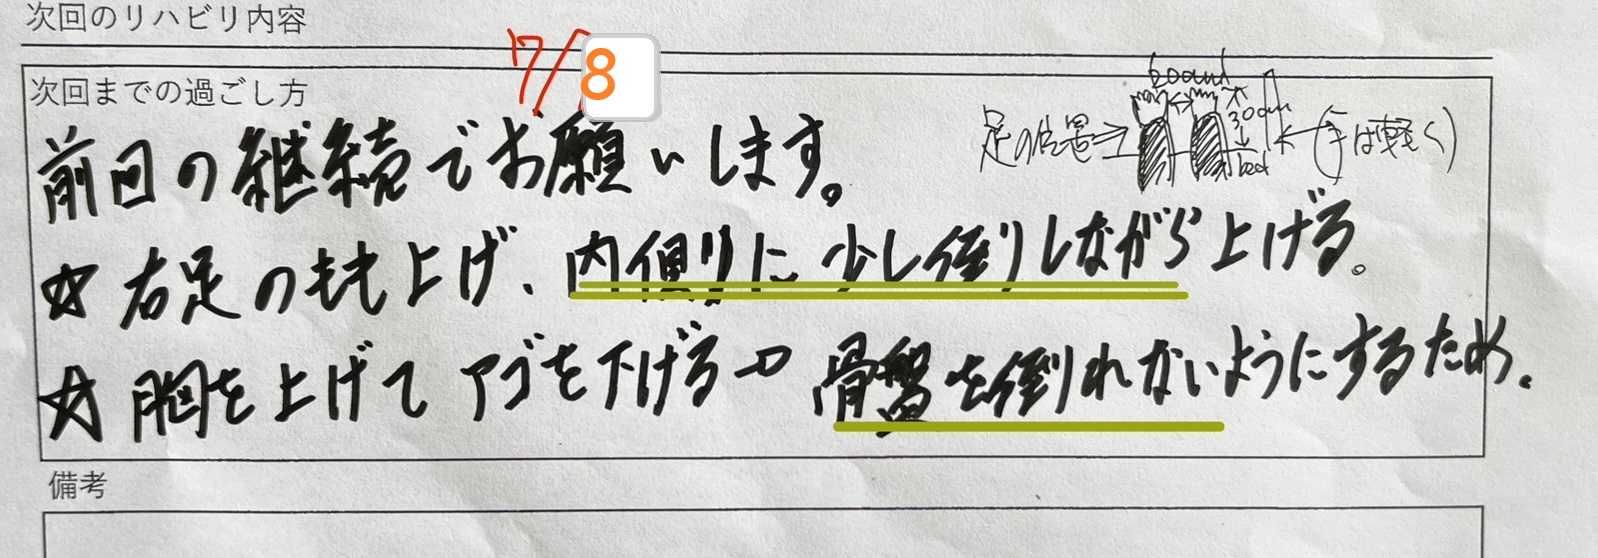 次回のリハビリ内容
7/8
次回までの過ごし方
足の位置→
30cm
←(手は軽く)
前回の継続でお願いします。
☆右足のもも上げ、内側りに少し倒りしながら上げる。
☆胸を上げてアゴを下げる→骨盤を倒れないようにするため。
備考